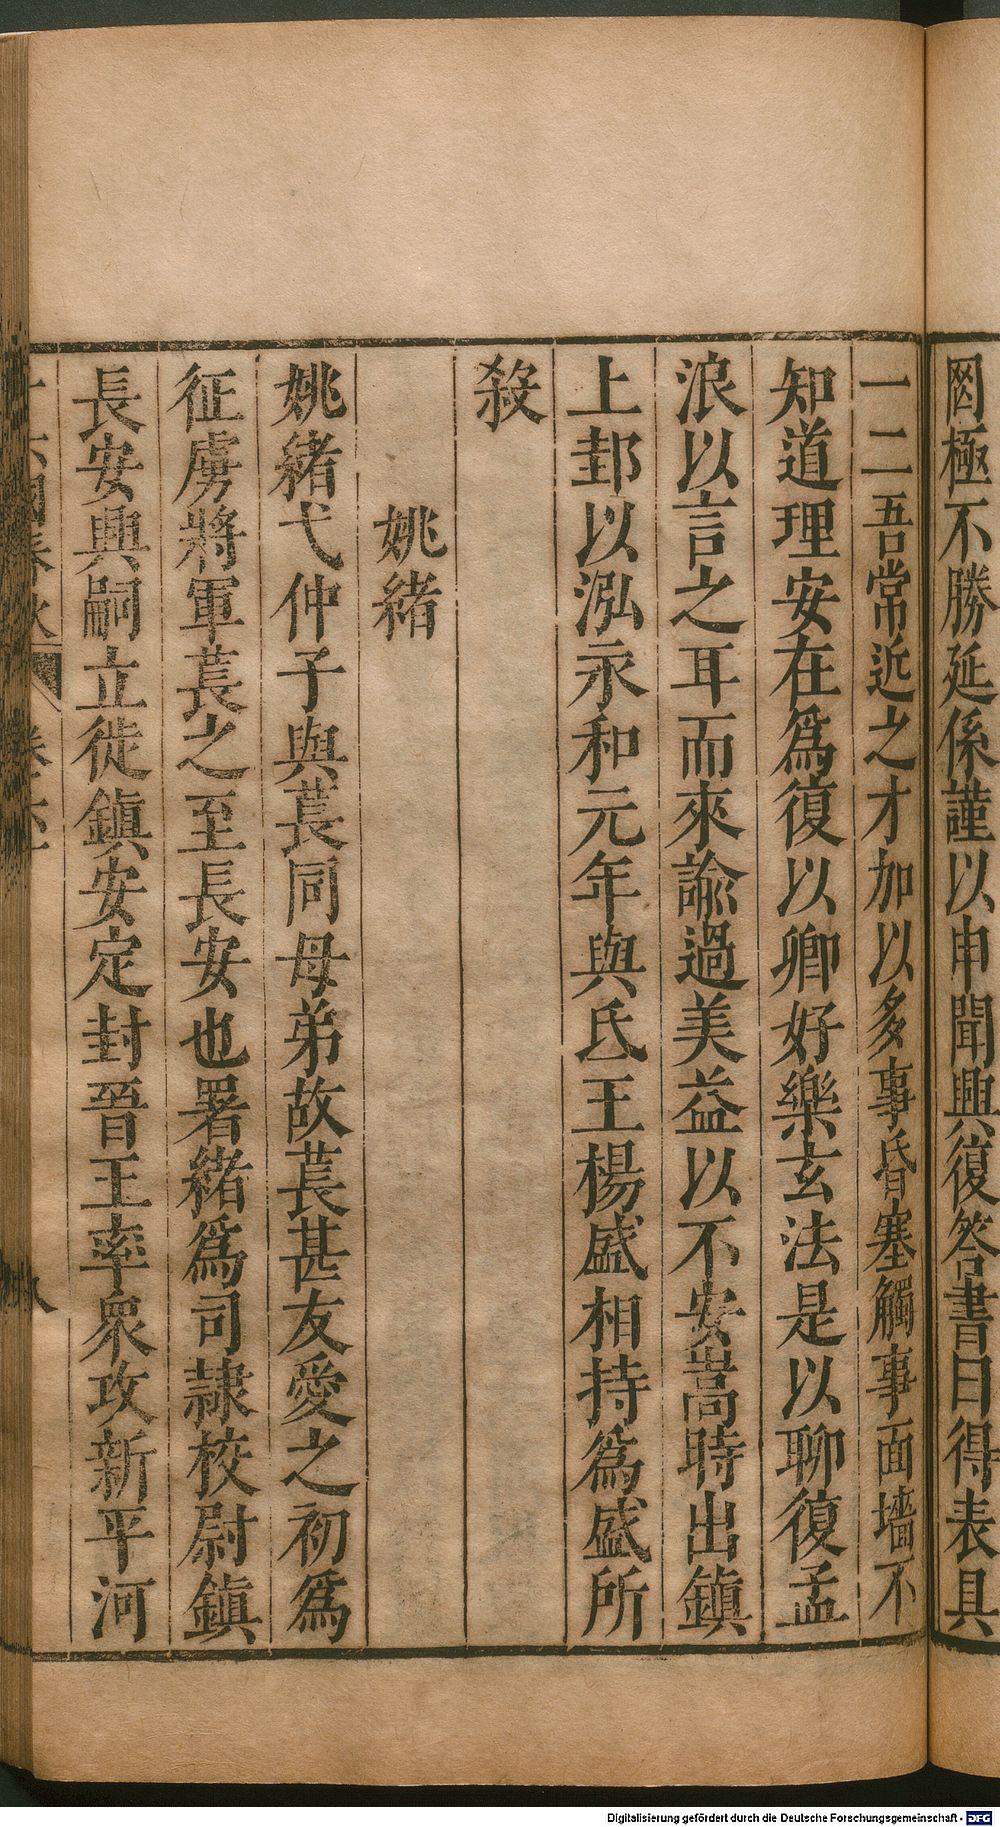 罔極不勝延係謹以申聞興復答書曰得表具
一二吾常近之才加以多事昏塞觸事面墻不
知道理安在爲復以卿好樂玄法是以聊復孟
浪以言之耳而來諭過美益以不安嵩時出鎮
上邽以泓永和元年與氐王楊盛相持爲盛所
殺
姚緒
姚緒弋仲子與萇同母弟故萇甚友愛之初爲
征虜將軍萇之至長安也署緒爲司隸校尉鎮
長安興嗣立徙鎮安定封晉王率衆攻新平河
十六國春秋
八
Digitalisierung gefördert durch die Deutsche Forschungsgemeinschaft - DFG